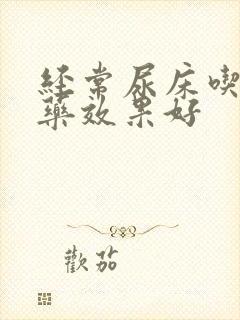 经常尿床喫
藥效果好
歡茄